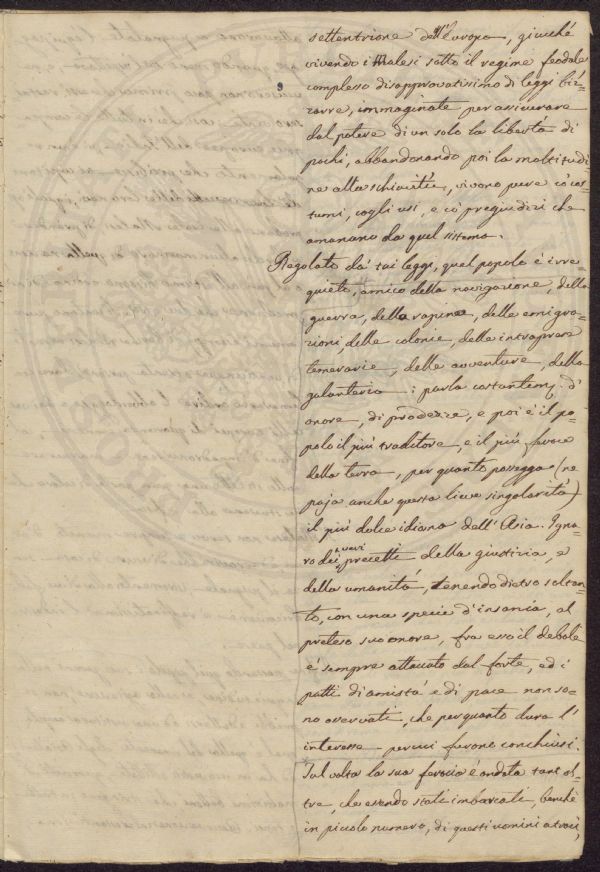 settentrione dell'Europa, giacché
vivendo i Malesi sotto il regime feodale
complesso disapprovatissimo di leggi biz-
zarre, immaginate per assicurare
dal potere di un solo la libertà di
pochi, abbandonando poi la moltitudi-
ne alla schiavitù, vivono pure co' cos-
tumi, cogli usi, e co' pregiudizi che
emanano da quel sistema.
Regolato da tai leggi, quel popolo è irre-
quieto, amico della navigazione, della
guerra, della rapina, delle emigra-
zioni, delle colonie, delle intraprese
temerarie, delle avventure, della
galanteria: parla costantem. d'
onore, di prodezze, e poi è il po-
polo il più traditore, e il più feroce
della terra, per quanto possegga (ne
paja anche questa lieve singolarità)
il più dolce idioma dell'Asia. Igna-
ro dei veri precetti della giustizia, e
della umanità, tenendo dietro soltan-
to, con una specie d'insania, al
preteso suo onore, fra esso il debole
è sempre attaccato dal forte, ed i
patti di amistà e di pace non so-
no osservati, che per quanto dura l'
interesse per cui furono conchiusi.
Tal volta la sua ferocia è andata tant'ol-
tre, che essendo stati imbarcati, benché
in piccolo numero, di questi uomini atroci,